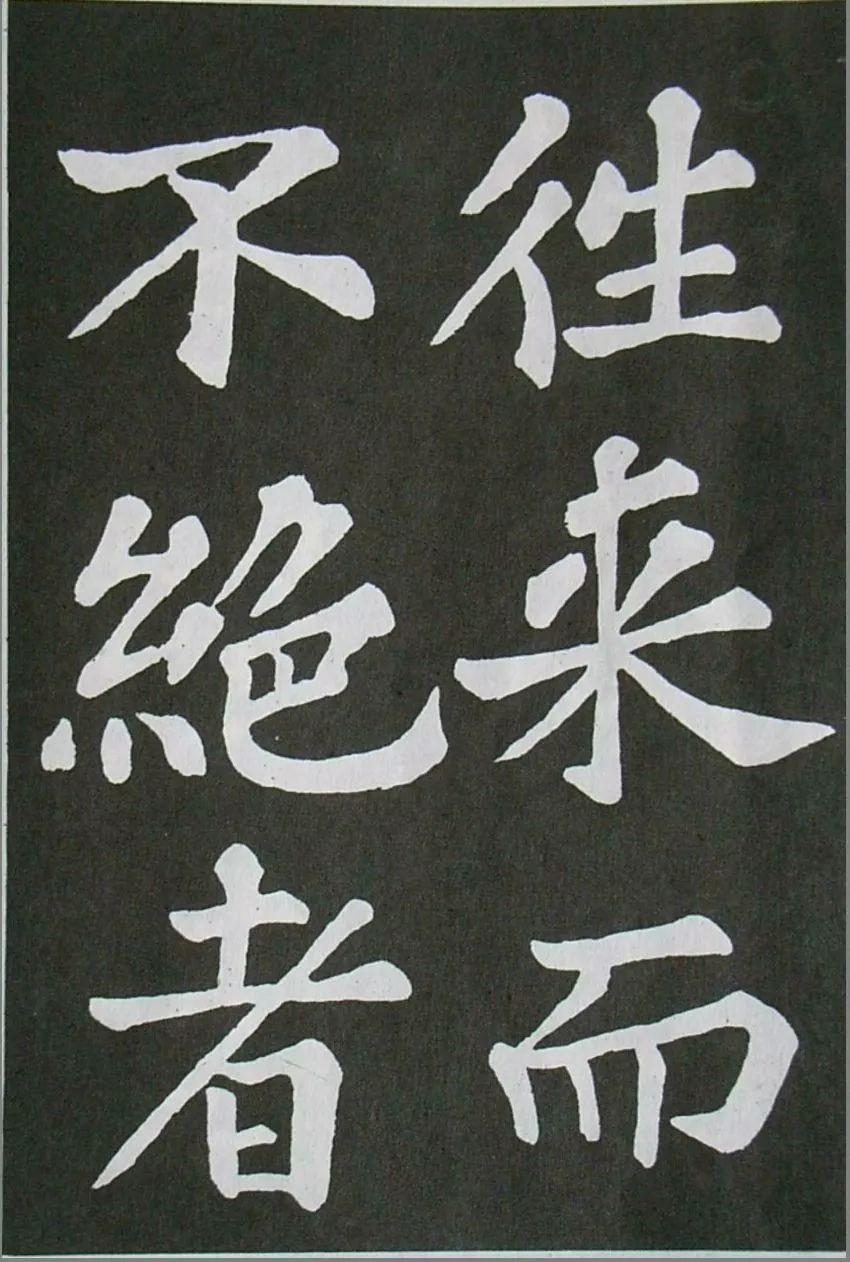 徃来而
不絶者